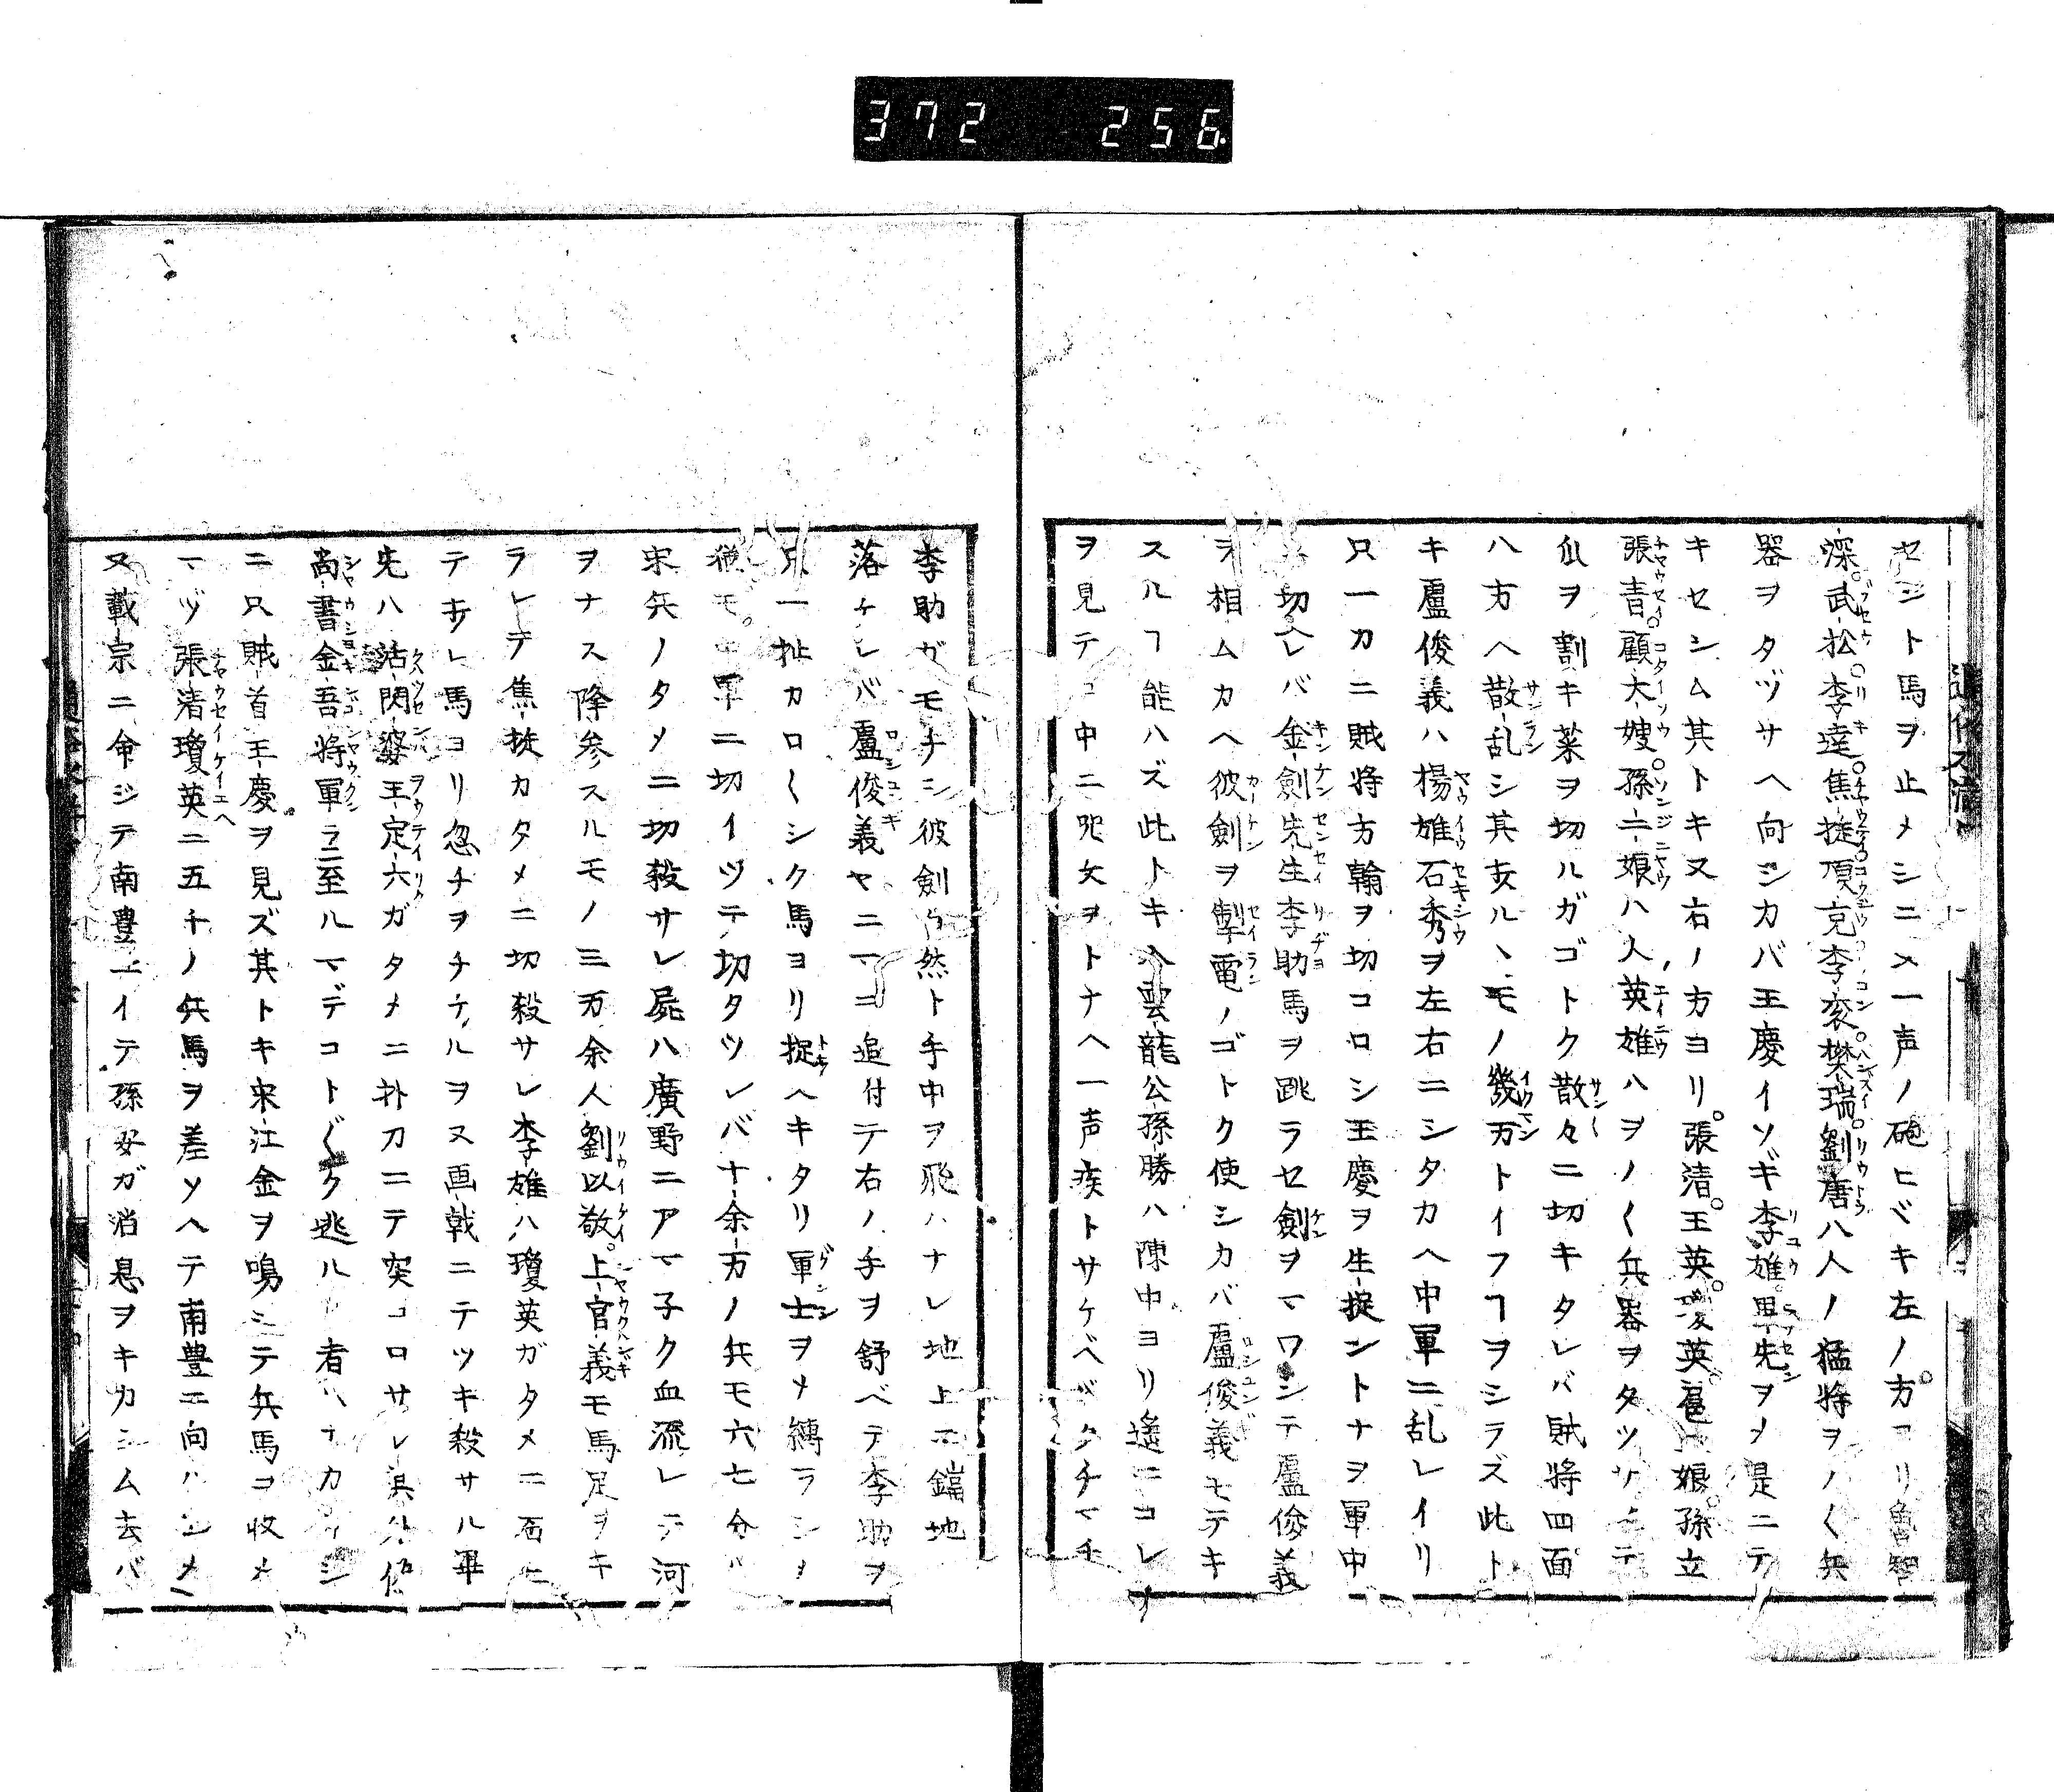 372 256
セシト馬ヲ止メシニ又一声ノ砲ヒヾキ左ノ方ヨリ魯智
深武松李逵焦挺項充李衮樊瑞劉唐八人ノ猛将ヲノ〱兵
器ヲタヅサヘ向シカバ王慶イソギ李雄畢先ヲメ是ニテ
キセシム其トキ又右ノ方ヨリ張清王英瓊英扈娘孫立
張青顧大嫂孫二娘ハ人英雄ハヲノ〱兵器ヲタツサヘテ
瓜ヲ割キ菜ヲ切ルガゴトク散々ニ切キタレバ賊将四面
八方ヘ散乱シ其亥ルヽモノ幾万トイフヿヲシラズ此ト
キ盧俊義ハ楊雄石秀ヲ左右ニシタカヘ中軍ニ乱レイリ
只一カニ賊将方翰ヲ切コロシ王慶ヲ生捉ントナヲ軍中
ニ切ヘレバ金劍先生李助馬ヲ跳ラセ劍ヲマワシテ盧俊義
ヲ相ムカヘ彼劍ヲ掣電ノゴトク使シカバ盧俊義モテキ
スルヿ能ハズ此トキ入雲龍公孫勝ハ陳中ヨリ遙ニコレ
ヲ見テ口中ニ呪文ヲトナヘ一声疾トサケベバタチマチ
李助ガモチシ彼劍ラ然ト手中ヲ飛ハナレ地上ニ鐺地
落ケレバ盧俊義ヤニマニ追付テ右ノ手ヲ舒ベテ李助ヲ
只一扯カロ〱シク馬ヨリ捉ヘキタリ軍士ヲメ縛ラシメ
猶モ軍ニ切イツテ切タツレバ十余万ノ兵モ六七分ハ
宋兵ノタメニ切殺サレ屍ハ廣野ニアマ子ク血流レテ河
ヲナス降参スルモノ三万余人劉以敬上官義モ馬足ヲキ
ラレテ焦挺カタメニ切殺サレ李雄ハ瓊英ガタメニ石ニ
テ打レ馬ヨリ忽チヲチケルヲ又画戟ニテツキ殺サル畢
先ハ活閃婆王定六ガタメニ朴刀ニテ突コロサレ其外偽
尚書金吾将軍ラニ至ルマデコト〲ク逃ル者ハナカリシ
ニ只賊首王慶ヲ見ズ其トキ宋江金ヲ鳴シテ兵馬ヲ收メ
マヅ張清瓊英ニ五千ノ兵馬ヲ差ソヘテ南豊エ向ハシメ
又載宗ニ命ジテ南豊エイテ孫安ガ消息ヲキカシム去バ